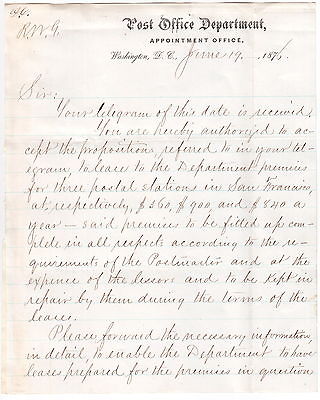 Post Office Department,
APPOINTMENT OFFICE,
Washington, D. C., June 19, 1876
Sir:
Your telegram of this date is received.
You are hereby authorized to ac-
cept the propositions, referred to in your tel-
egram, to lease to the Department premises
for three postal stations in San Francisco,
at, respectively, $360, $900, and $840 a
year – said premises to be fitted up com-
plete in all respects according to the re-
quirements of the Postmaster and at the
expense of the lessors and to be kept in
repair by them during the terms of the
leases.
Please forward the necessary information,
in detail, to enable the Department to have
leases prepared for the premises in question